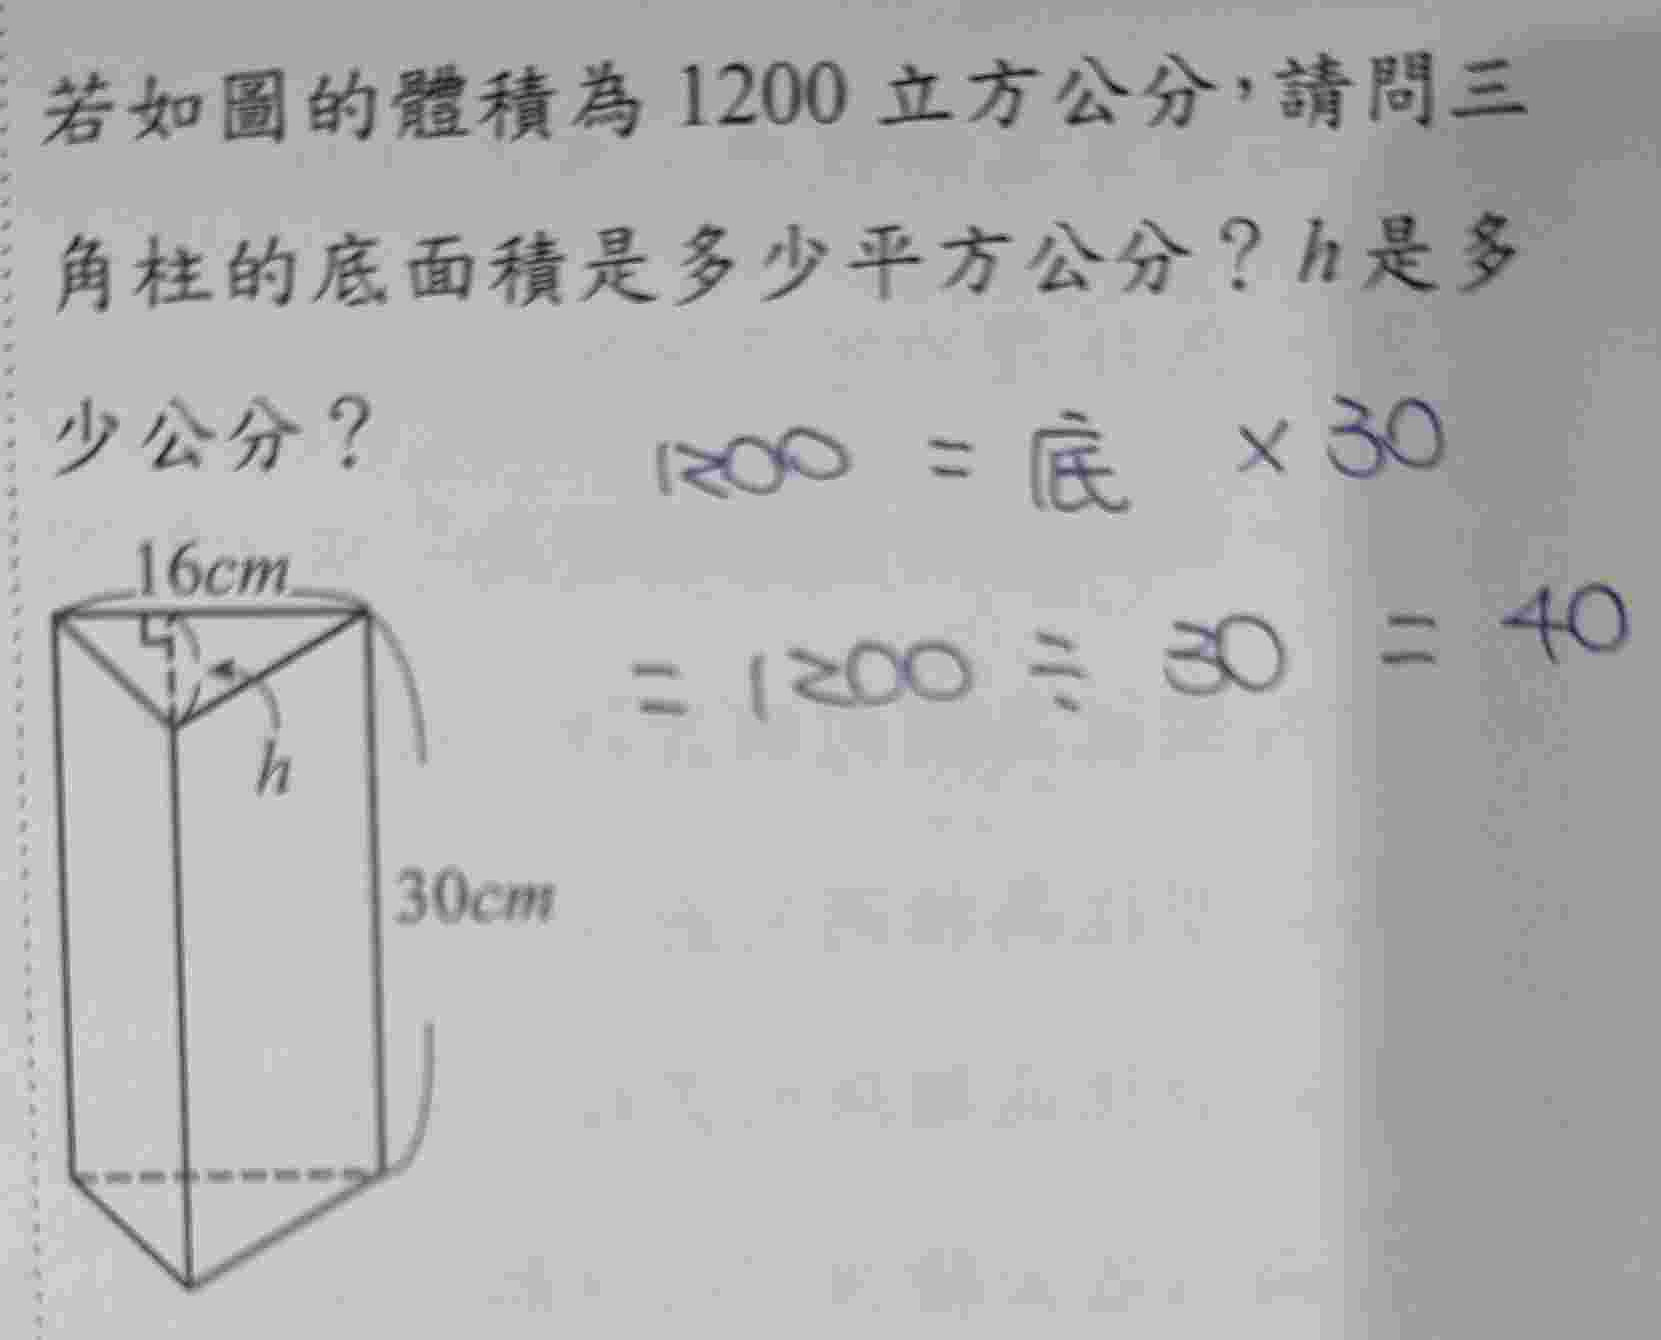 若如圖的體積為 1200 立方公分，請問三
角柱的底面積是多少平方公分？h是多
少公分？
1200 = 底 × 30
= 1200 ÷ 30 = 40
16cm
h
30cm